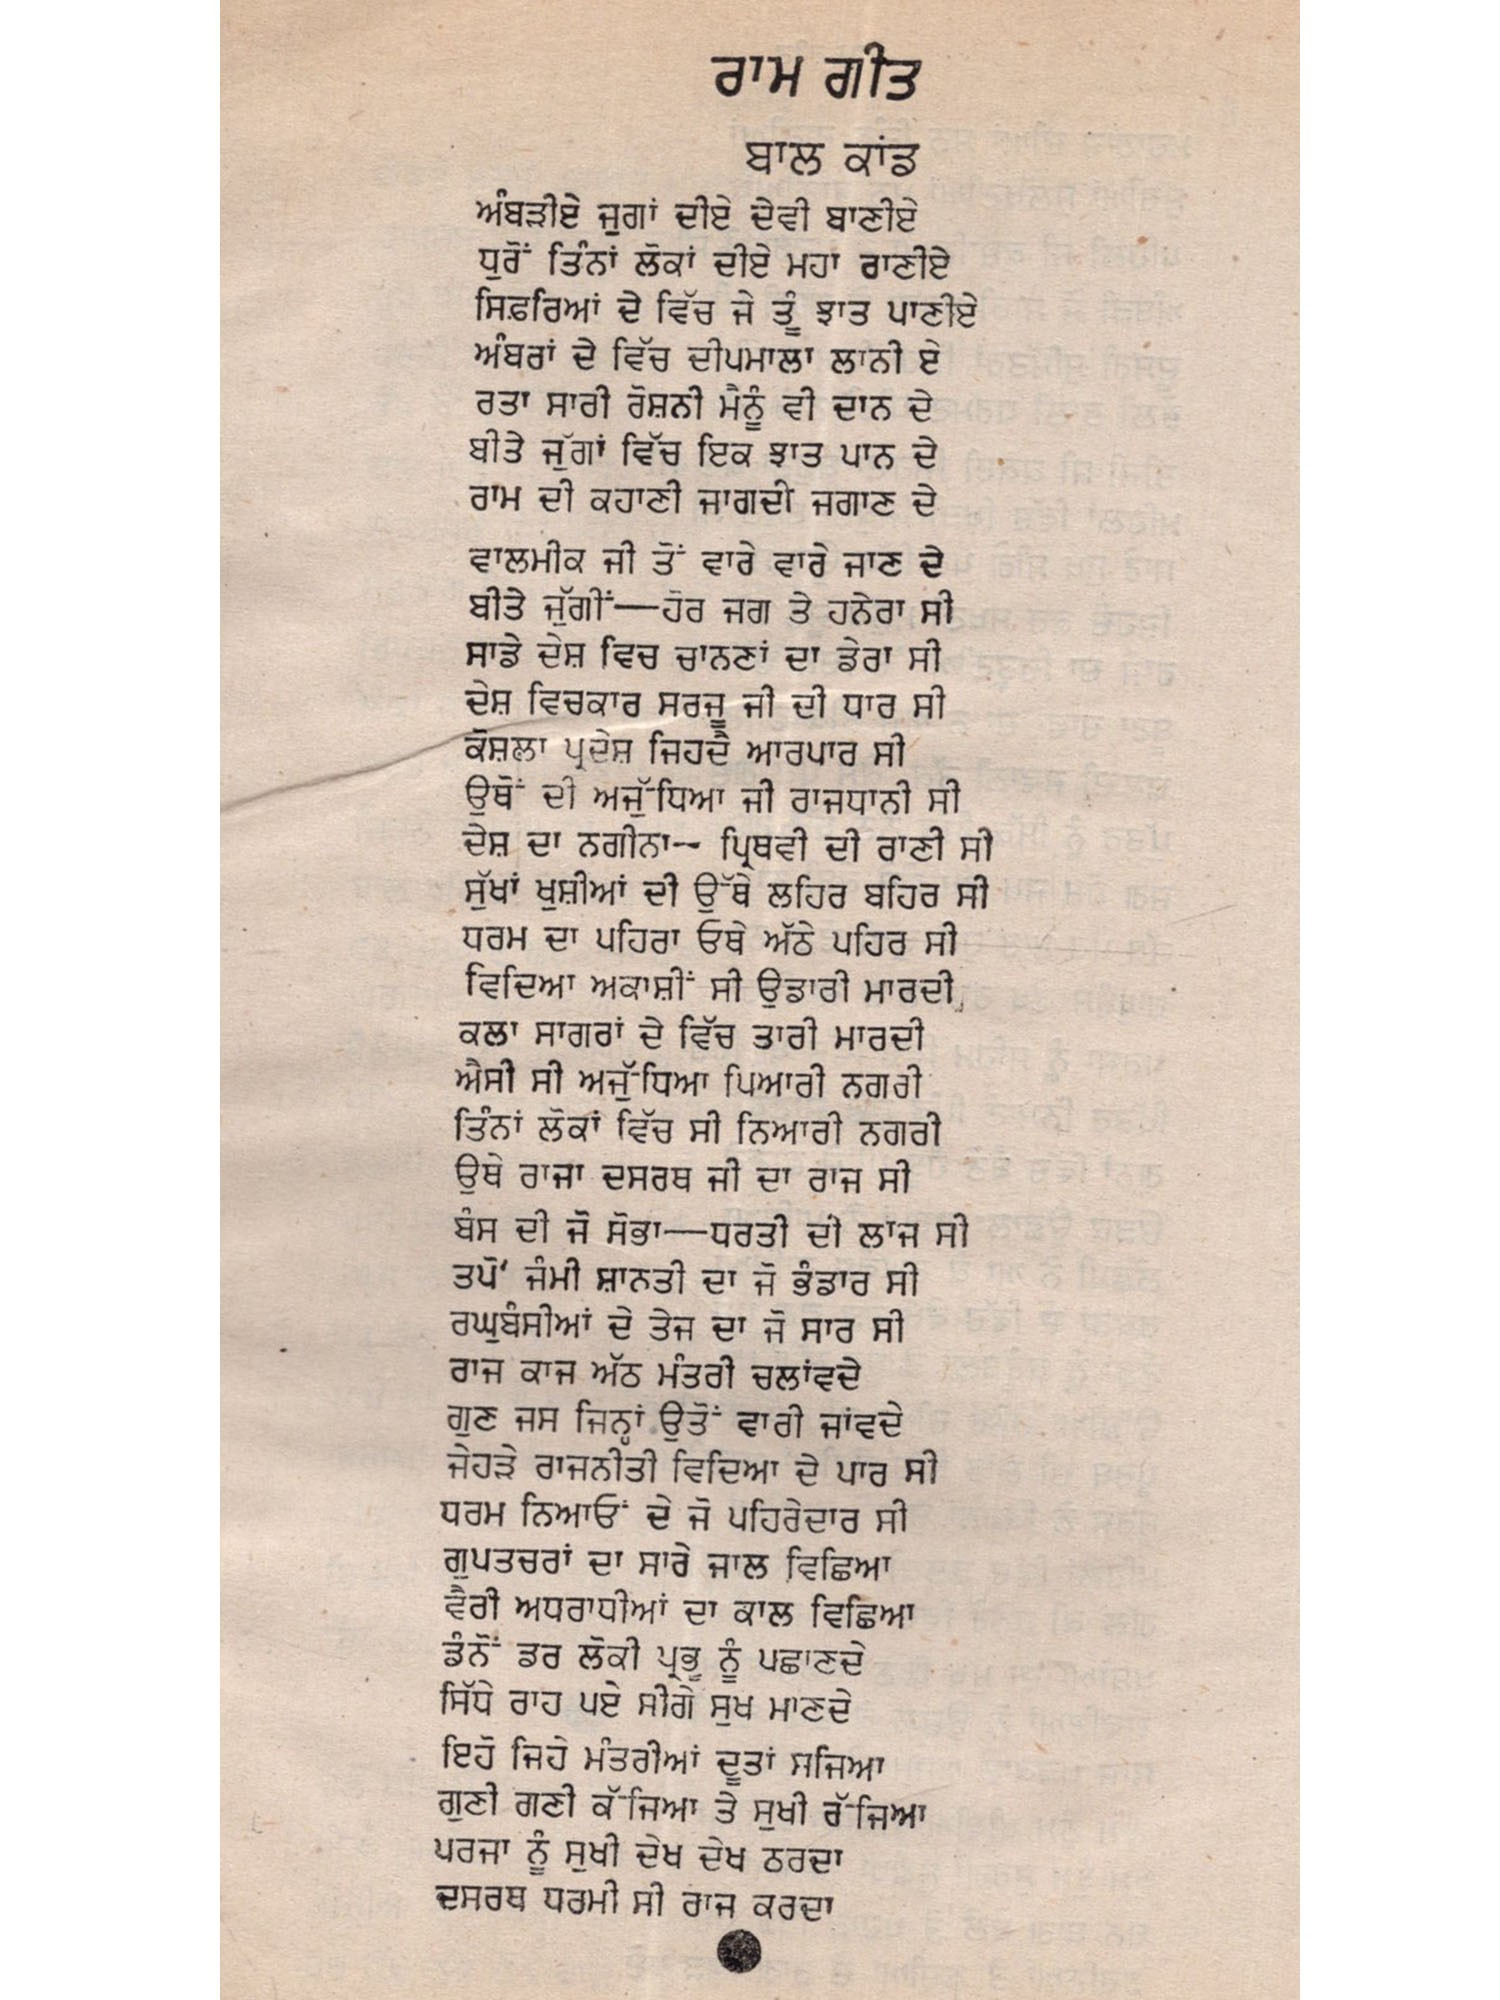 ਰਾਮ ਗੀਤ
ਬਾਲ ਕਾਂਡ
ਅੰਬੜੀਏ ਜੁਗਾਂ ਦੀਏ ਦੇਵੀ ਬਾਣੀਏ
ਧੁਰੋਂ ਤਿੰਨਾਂ ਲੋਕਾਂ ਦੀਏ ਮਹਾ ਰਾਣੀਏ
ਸਿਫ਼ਰਿਆਂ ਦੇ ਵਿੱਚ ਜੇ ਤੂੰ ਝਾਤ ਪਾਣੀਏ
ਅੰਬਰਾਂ ਦੇ ਵਿੱਚ ਦੀਪਮਾਲਾ ਲਾਨੀ ਏ
ਰਤਾ ਸਾਰੀ ਰੋਸ਼ਨੀ ਮੈਨੂੰ ਵੀ ਦਾਨ ਦੇ
ਬੀਤੇ ਜੁੱਗਾਂ ਵਿੱਚ ਇਕ ਝਾਤ ਪਾਨ ਦੇ
ਰਾਮ ਦੀ ਕਹਾਣੀ ਜਾਗਦੀ ਜਗਾਣ ਦੇ
ਵਾਲਮੀਕ ਜੀ ਤੋਂ ਵਾਰੇ ਵਾਰੇ ਜਾਣ ਦੇ
ਬੀਤੇ ਜੁੱਗੀਂ—ਹੋਰ ਜਗ ਤੇ ਹਨੇਰਾ ਸੀ
ਸਾਡੇ ਦੇਸ਼ ਵਿਚ ਚਾਨਣਾਂ ਦਾ ਡੇਰਾ ਸੀ
ਦੇਸ਼ ਵਿਚਕਾਰ ਸਰਜੂ ਜੀ ਦੀ ਧਾਰ ਸੀ
ਕੋਸ਼ਲਾ ਪ੍ਰਦੇਸ਼ ਜਿਹਦੇ ਆਰਪਾਰ ਸੀ
ਉਥੋਂ ਦੀ ਅਜੁੱਧਿਆ ਜੀ ਰਾਜਧਾਨੀ ਸੀ
ਦੇਸ਼ ਦਾ ਨਗੀਨਾ-- ਪ੍ਰਿਥਵੀ ਦੀ ਰਾਣੀ ਸੀ
ਸੁੱਖਾਂ ਖੁਸ਼ੀਆਂ ਦੀ ਉੱਥੇ ਲਹਿਰ ਬਹਿਰ ਸੀ
ਧਰਮ ਦਾ ਪਹਿਰਾ ਓਥੇ ਅੱਠੇ ਪਹਿਰ ਸੀ
ਵਿਦਿਆ ਅਕਾਸ਼ੀਂ ਸੀ ਉਡਾਰੀ ਮਾਰਦੀ
ਕਲਾ ਸਾਗਰਾਂ ਦੇ ਵਿੱਚ ਤਾਰੀ ਮਾਰਦੀ
ਐਸੀ ਸੀ ਅਜੁੱਧਿਆ ਪਿਆਰੀ ਨਗਰੀ
ਤਿੰਨਾਂ ਲੋਕਾਂ ਵਿੱਚ ਸੀ ਨਿਆਰੀ ਨਗਰੀ
ਉਥੇ ਰਾਜਾ ਦਸਰਥ ਜੀ ਦਾ ਰਾਜ ਸੀ
ਬੰਸ ਦੀ ਜੋ ਸੋਭਾ—ਧਰਤੀ ਦੀ ਲਾਜ ਸੀ
ਤਪੋਂ ਜੰਮੀ ਸ਼ਾਨਤੀ ਦਾ ਜੋ ਭੰਡਾਰ ਸੀ
ਰਘੁਬੰਸੀਆਂ ਦੇ ਤੇਜ ਦਾ ਜੋ ਸਾਰ ਸੀ
ਰਾਜ ਕਾਜ ਅੱਠ ਮੰਤਰੀ ਚਲਾਂਵਦੇ
ਗੁਣ ਜਸ ਜਿਨ੍ਹਾਂ ਉਤੋਂ ਵਾਰੀ ਜਾਂਵਦੇ
ਜੇਹੜੇ ਰਾਜਨੀਤੀ ਵਿਦਿਆ ਦੇ ਪਾਰ ਸੀ
ਧਰਮ ਨਿਆਓਂ ਦੇ ਜੋ ਪਹਿਰੇਦਾਰ ਸੀ
ਗੁਪਤਚਰਾਂ ਦਾ ਸਾਰੇ ਜਾਲ ਵਿਛਿਆ
ਵੈਰੀ ਅਧਰਾਧੀਆਂ ਦਾ ਕਾਲ ਵਿਛਿਆ
ਡੰਨੋਂ ਡਰ ਲੋਕੀ ਪ੍ਰਭੂ ਨੂੰ ਪਛਾਣਦੇ
ਸਿੱਧੇ ਰਾਹ ਪਏ ਸੀਗੇ ਸੁਖ ਮਾਣਦੇ
ਇਹੋ ਜਿਹੇ ਮੰਤਰੀਆਂ ਦੂਤਾਂ ਸਜਿਆ
ਗੁਣੀ ਗਣੀ ਕੱਜਿਆ ਤੇ ਸੁਖੀ ਰੱਜਿਆ
ਪਰਜਾ ਨੂੰ ਸੁਖੀ ਦੇਖ ਦੇਖ ਠਰਦਾ
ਦਸਰਥ ਧਰਮੀ ਸੀ ਰਾਜ ਕਰਦਾ